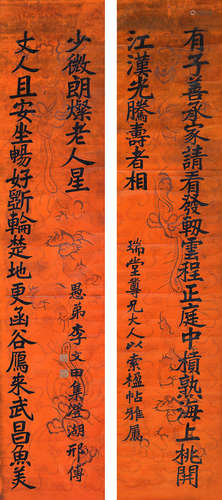 有子善承家請看發軔雲程正庭中積熟海上桃開
江漢光騰壽者相
瑞堂尊兄大人以索楹帖雅屬
丈人且安坐暢好斲輪楚地更函谷鴈來武昌魚美
少微朗燦老人星
愚弟李文田集澄湖邢傳